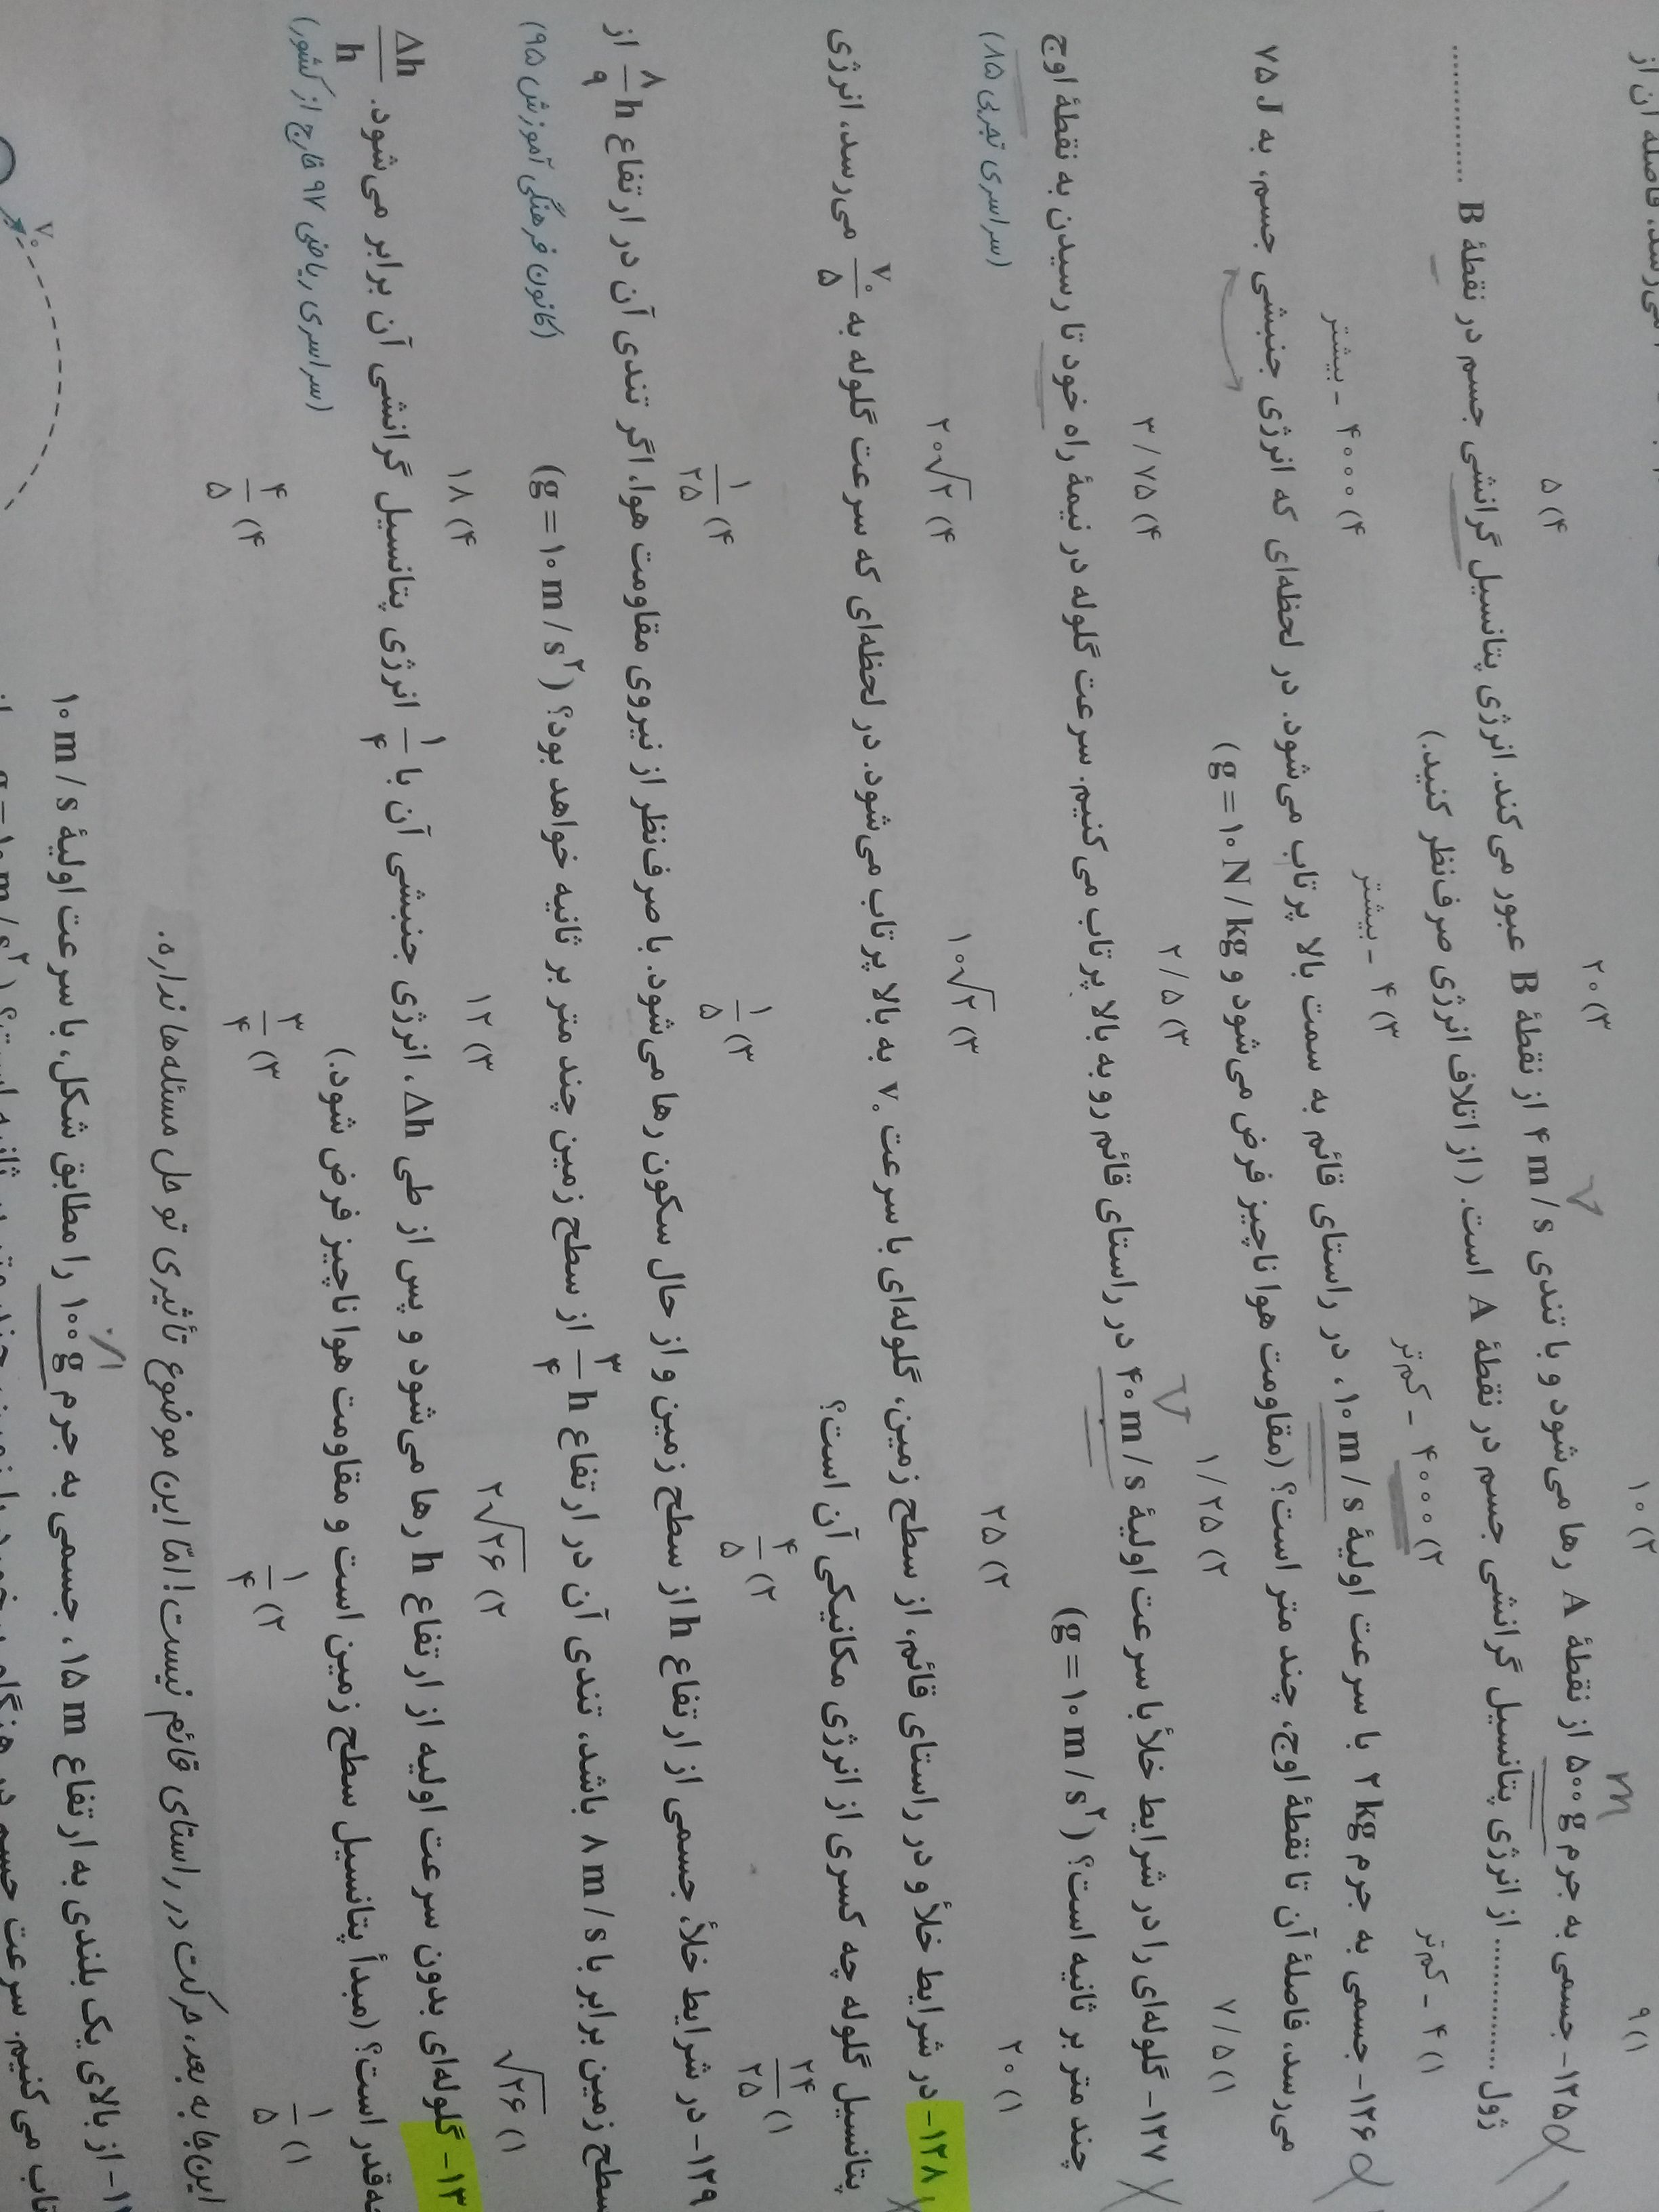 ۱) ۹ ۲) ۱۰ ۳) ۲۰ ۴) ۵
۱۲۵- جسمی به جرم ۵۰۰ g از نقطهٔ A رها می‌شود و با تندی ۴ m/s از نقطهٔ B عبور می‌کند. انرژی پتانسیل گرانشی جسم در نقطهٔ B ............
............ ژول از انرژی پتانسیل گرانشی جسم در نقطهٔ A است. (از اتلاف انرژی صرف‌نظر کنید.)
۱) ۴ - کم‌تر ۲) ۴۰۰۰ - کم‌تر ۳) ۴ - بیشتر ۴) ۴۰۰۰ - بیشتر
۱۲۶- جسمی به جرم ۲ kg با سرعت اولیهٔ ۱۰ m/s، در راستای قائم به سمت بالا پرتاب می‌شود. در لحظه‌ای که انرژی جنبشی جسم، به ۷۵ J
می‌رسد، فاصلهٔ آن تا نقطهٔ اوج، چند متر است؟ (مقاومت هوا ناچیز فرض می‌شود و g = ۱۰ N/kg)
۱) ۷/۵ ۲) ۱/۲۵ ۳) ۲/۵ ۴) ۳/۷۵
۱۲۷- گلوله‌ای را در شرایط خلأ با سرعت اولیهٔ ۴۰ m/s در راستای قائم رو به بالا پرتاب می‌کنیم. سرعت گلوله در نیمهٔ راه خود تا رسیدن به نقطهٔ اوج
چند متر بر ثانیه است؟ (g = ۱۰ m/s²) (سراسری تجربی ۸۵)
۱) ۲۰ ۲) ۲۵ ۳) ۱۰√۲ ۴) ۲۰√۲
۱۲۸- در شرایط خلأ و در راستای قائم، از سطح زمین، گلوله‌ای با سرعت v₀ به بالا پرتاب می‌شود. در لحظه‌ای که سرعت گلوله به v₀/۵ می‌رسد، انرژی
پتانسیل گلوله چه کسری از انرژی مکانیکی آن است؟
۱) ۲۴/۲۵ ۲) ۴/۵ ۳) ۱/۵ ۴) ۱/۲۵
۱۲۹- در شرایط خلأ، جسمی از ارتفاع h از سطح زمین و از حال سکون رها می‌شود. با صرف‌نظر از نیروی مقاومت هوا، اگر تندی آن در ارتفاع ۸/۹ h از
سطح زمین برابر با ۸ m/s باشد، تندی آن در ارتفاع ۳/۴ h از سطح زمین چند متر بر ثانیه خواهد بود؟ (g = ۱۰ m/s²) (کانون فرهنگی آموزش ۹۵)
۱) √۲۶ ۲) ۲√۲۶ ۳) ۱۲ ۴) ۱۸
۱۳- گلوله‌ای بدون سرعت اولیه از ارتفاع h رها می‌شود و پس از طی Δh، انرژی جنبشی آن با ۱/۴ انرژی پتانسیل گرانشی آن برابر می‌شود. Δh/h
قدر است؟ (مبدأ پتانسیل سطح زمین است و مقاومت هوا ناچیز فرض شود.) (سراسری ریاضی ۹۷ خارج از کشور)
۱) ۱/۵ ۲) ۱/۴ ۳) ۳/۴ ۴) ۴/۵
این‌جا به بعد، حرکت در راستای قائم نیست! امّا این موضوع تأثیری تو حل مسئله‌ها نداره.
از بالای یک بلندی به ارتفاع ۱۵ m، جسمی به جرم ۱۰۰ g را مطابق شکل، با سرعت اولیهٔ ۱۰ m/s
v₀